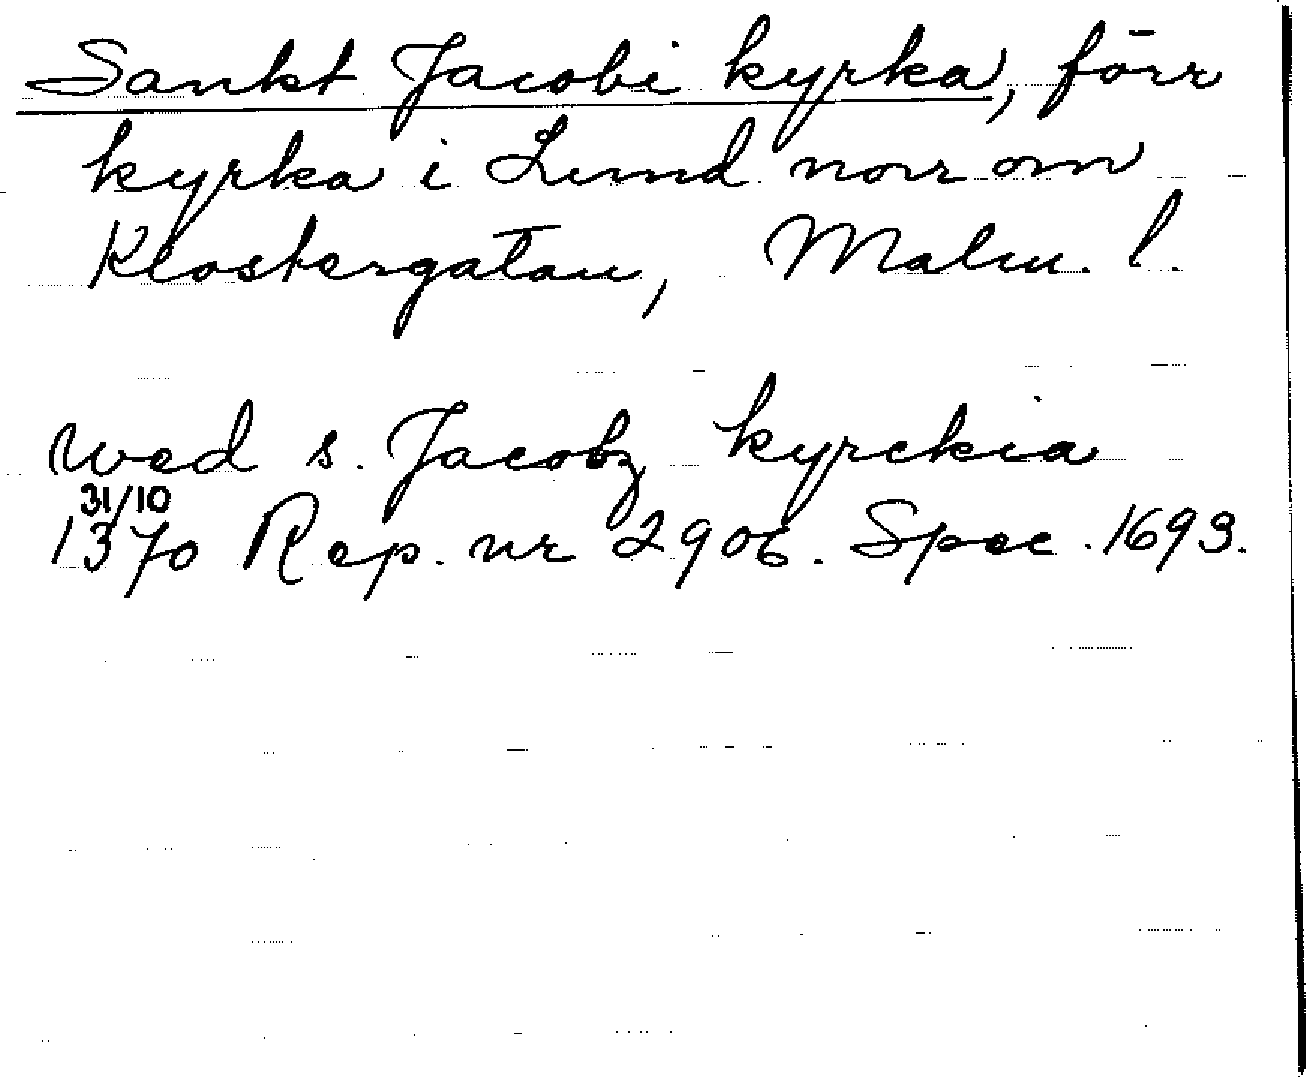 Sankt Jacobi kyrka, förr
kyrka i Lund norr om
Klostergatan, Malm. l.
wed s. Jacobz kyrckia
31/10
1370 Rep. nr 2906. Spec. 1693.